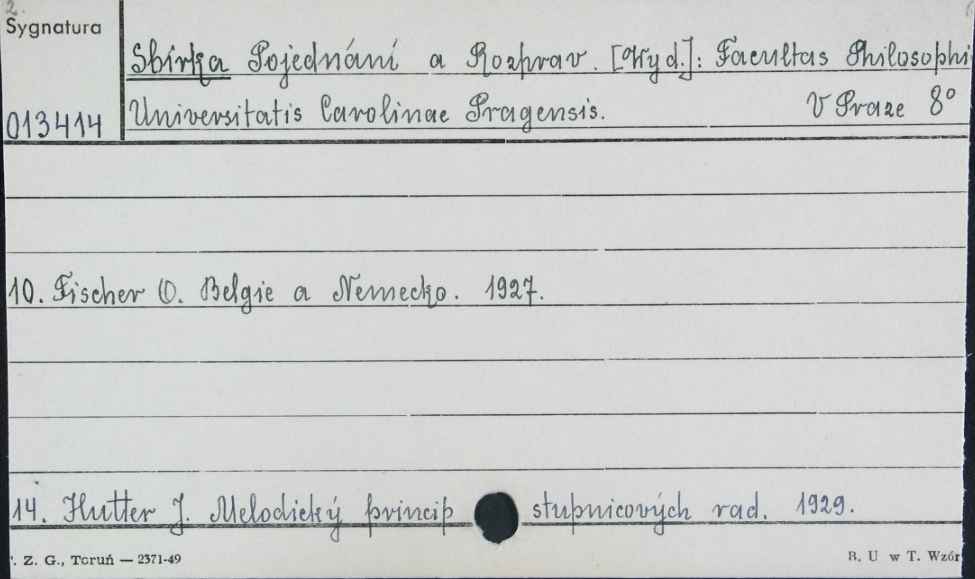 2.
Sygnatura
Sbírka Pojednání a Rozprav. [Wyd.]: Facultas Philosophi
013414 Universitatis Carolinae Pragensis. V Praze 8°
10. Fischer O. Belgie a Nemecko. 1927.
14. Hutter J. Melodický princip stupnicových rad. 1929.
. Z. G., Toruń — 2371-49 B. U w T. Wzór